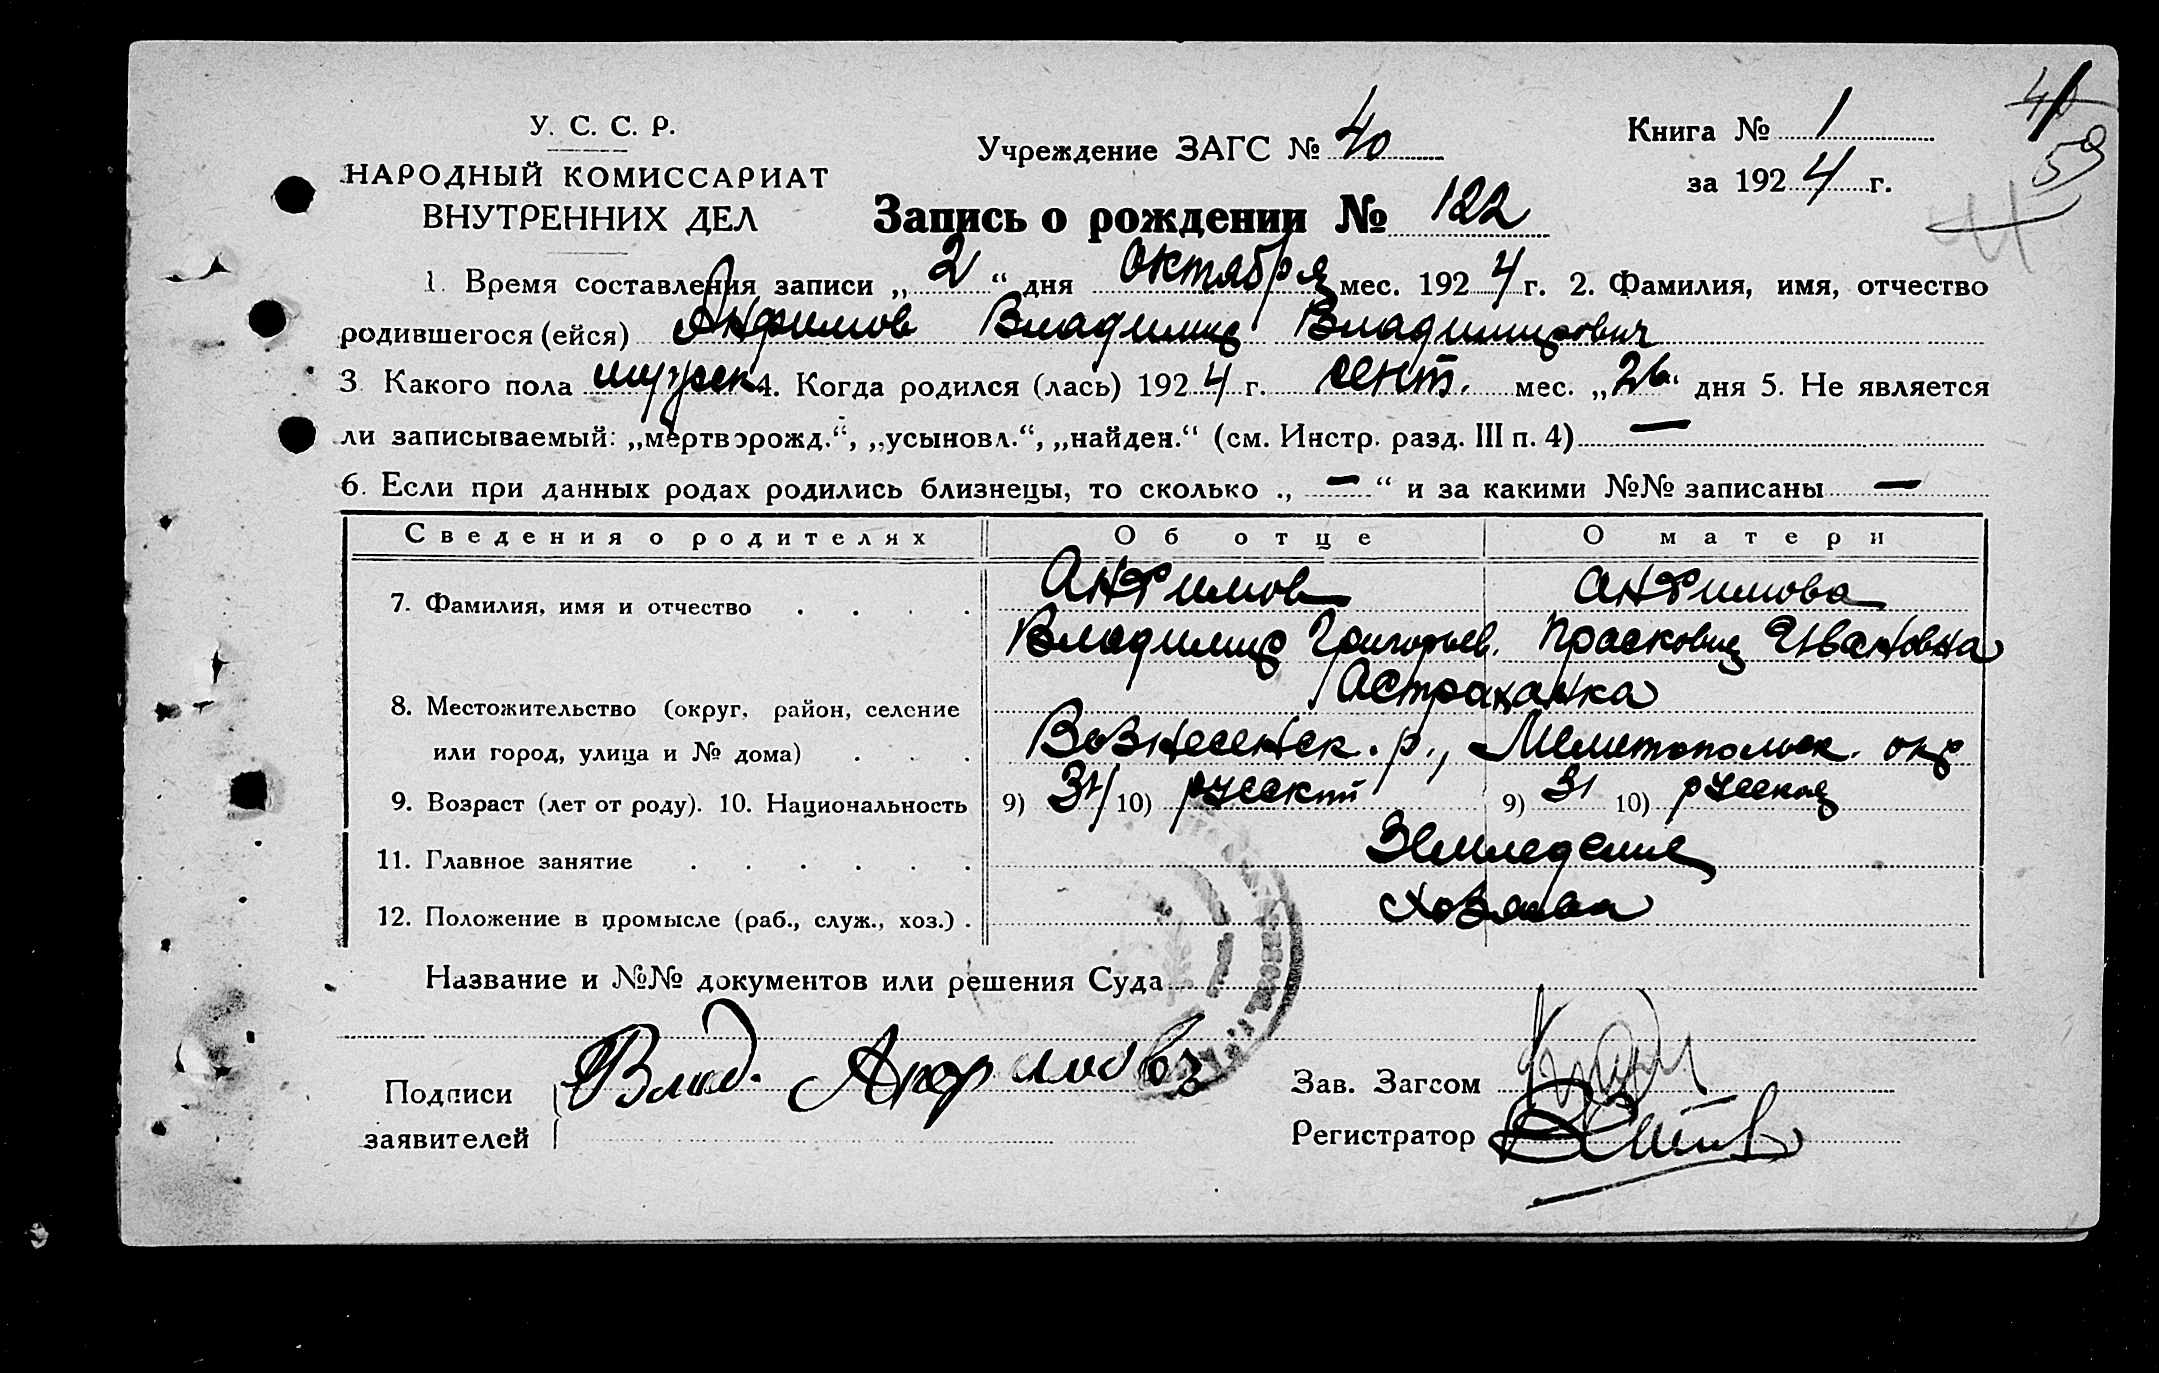 У. С. С. Р.
НАРОДНЫЙ КОМИССАРИАТ
ВНУТРЕННИХ ДЕЛ
Учреждение ЗАГС № 40
Книга № 1
за 1924 г.
41
59
Запись о рождении № 122
1. Время составления записи „2“ дня октября мес. 1924 г. 2. Фамилия, имя, отчество
родившегося (ейся) Анфимов Владимир Владимирович
3. Какого пола мужск 4. Когда родился (лась) 1924 г. сент. мес. „26“ дня 5. Не является
ли записываемый: „мертворожд.“, „усыновл.“, „найден.“ (см. Инстр. разд. III п. 4) —
6. Если при данных родах родились близнецы, то сколько „—“ и за какими №№ записаны —
Сведения о родителях Об отце О матери
7. Фамилия, имя и отчество . . . . Анфимов Анфимова
Владимир Григорьев. Прасковия Ивановна
8. Местожительство (округ, район, селение Астраханка
или город, улица и № дома) . . . Вознесенск. р., Мелитопольск. окр
9. Возраст (лет от роду). 10. Национальность 9) 31 10) русский 9) 31 10) русская
11. Главное занятие . . . . . . Земледелие
12. Положение в промысле (раб., служ., хоз.) . хозяева
Название и №№ документов или решения Суда
Подписи Влад. Анфимовъ
заявителей
Зав. Загсом
Регистратор